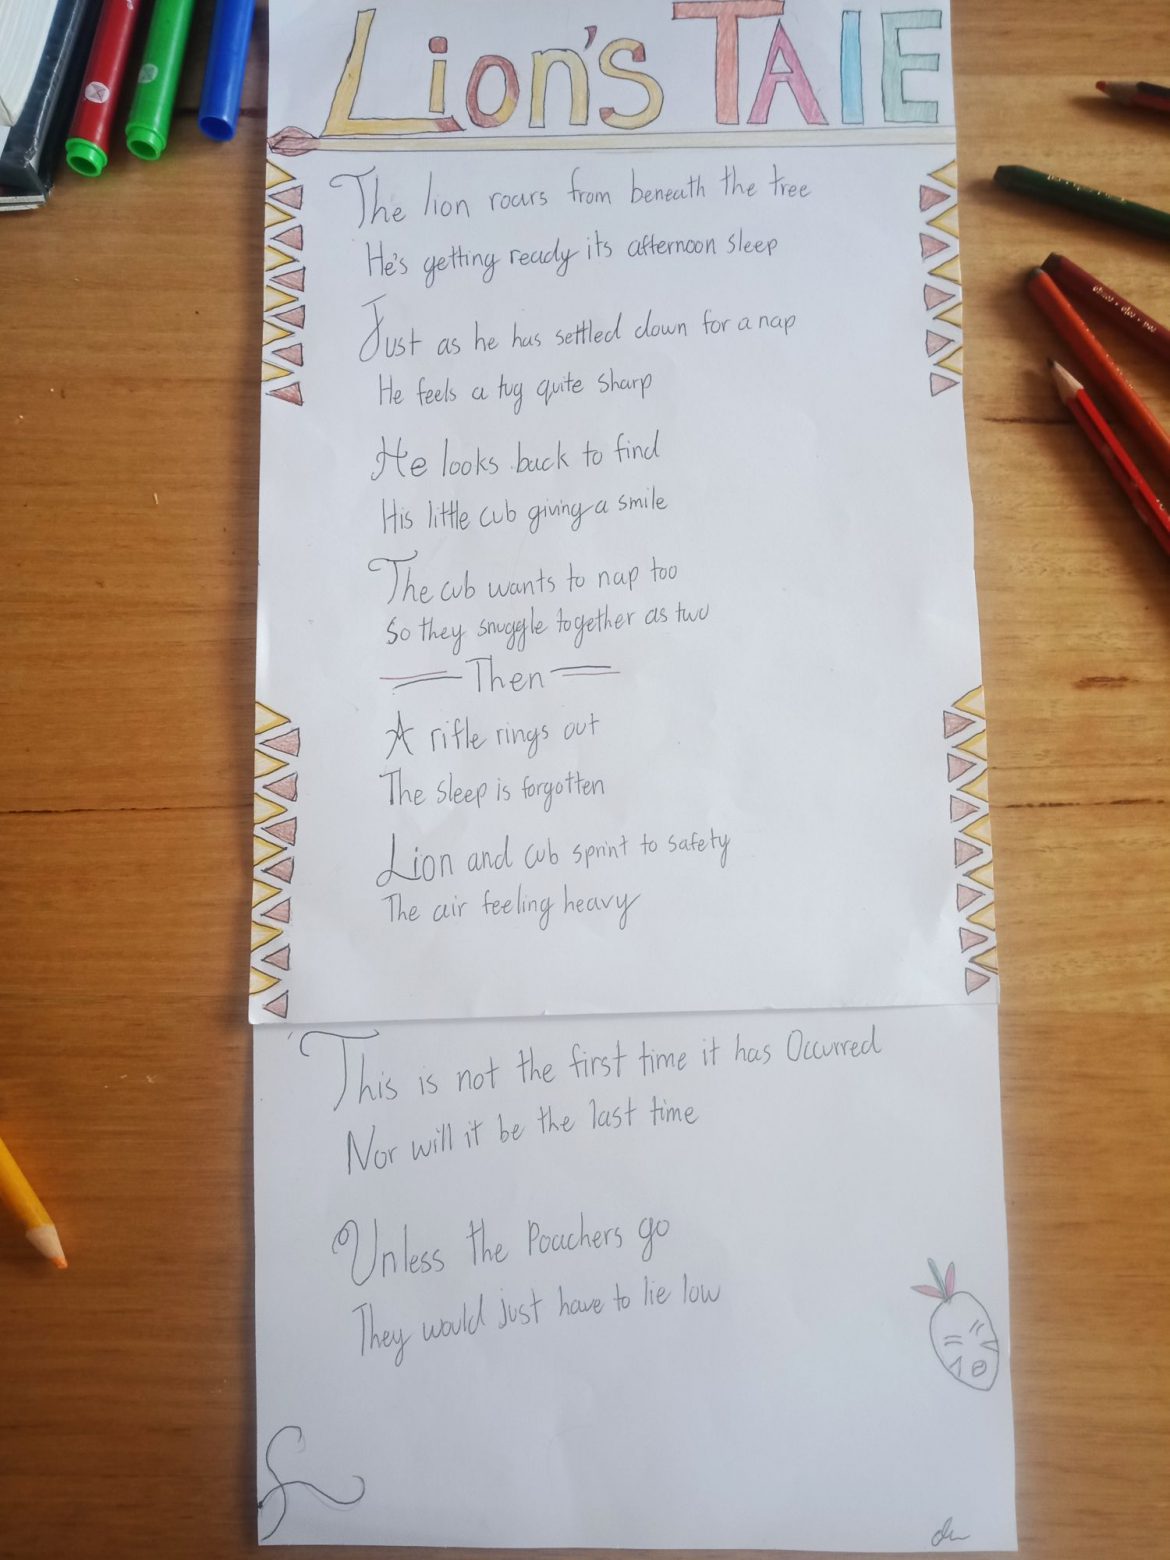 Lion's TAlE
The lion roars from beneath the tree
He's getting ready its afternoon sleep
Just as he has settled down for a nap
He feels a tug quite sharp
He looks back to find
His little cub giving a smile
The cub wants to nap too
So they snuggle together as two
Then
A rifle rings out
The sleep is forgotten
Lion and cub sprint to safety
The air feeling heavy
This is not the first time it has Occurred
Nor will it be the last time
Unless the Poachers go
They would just have to lie low